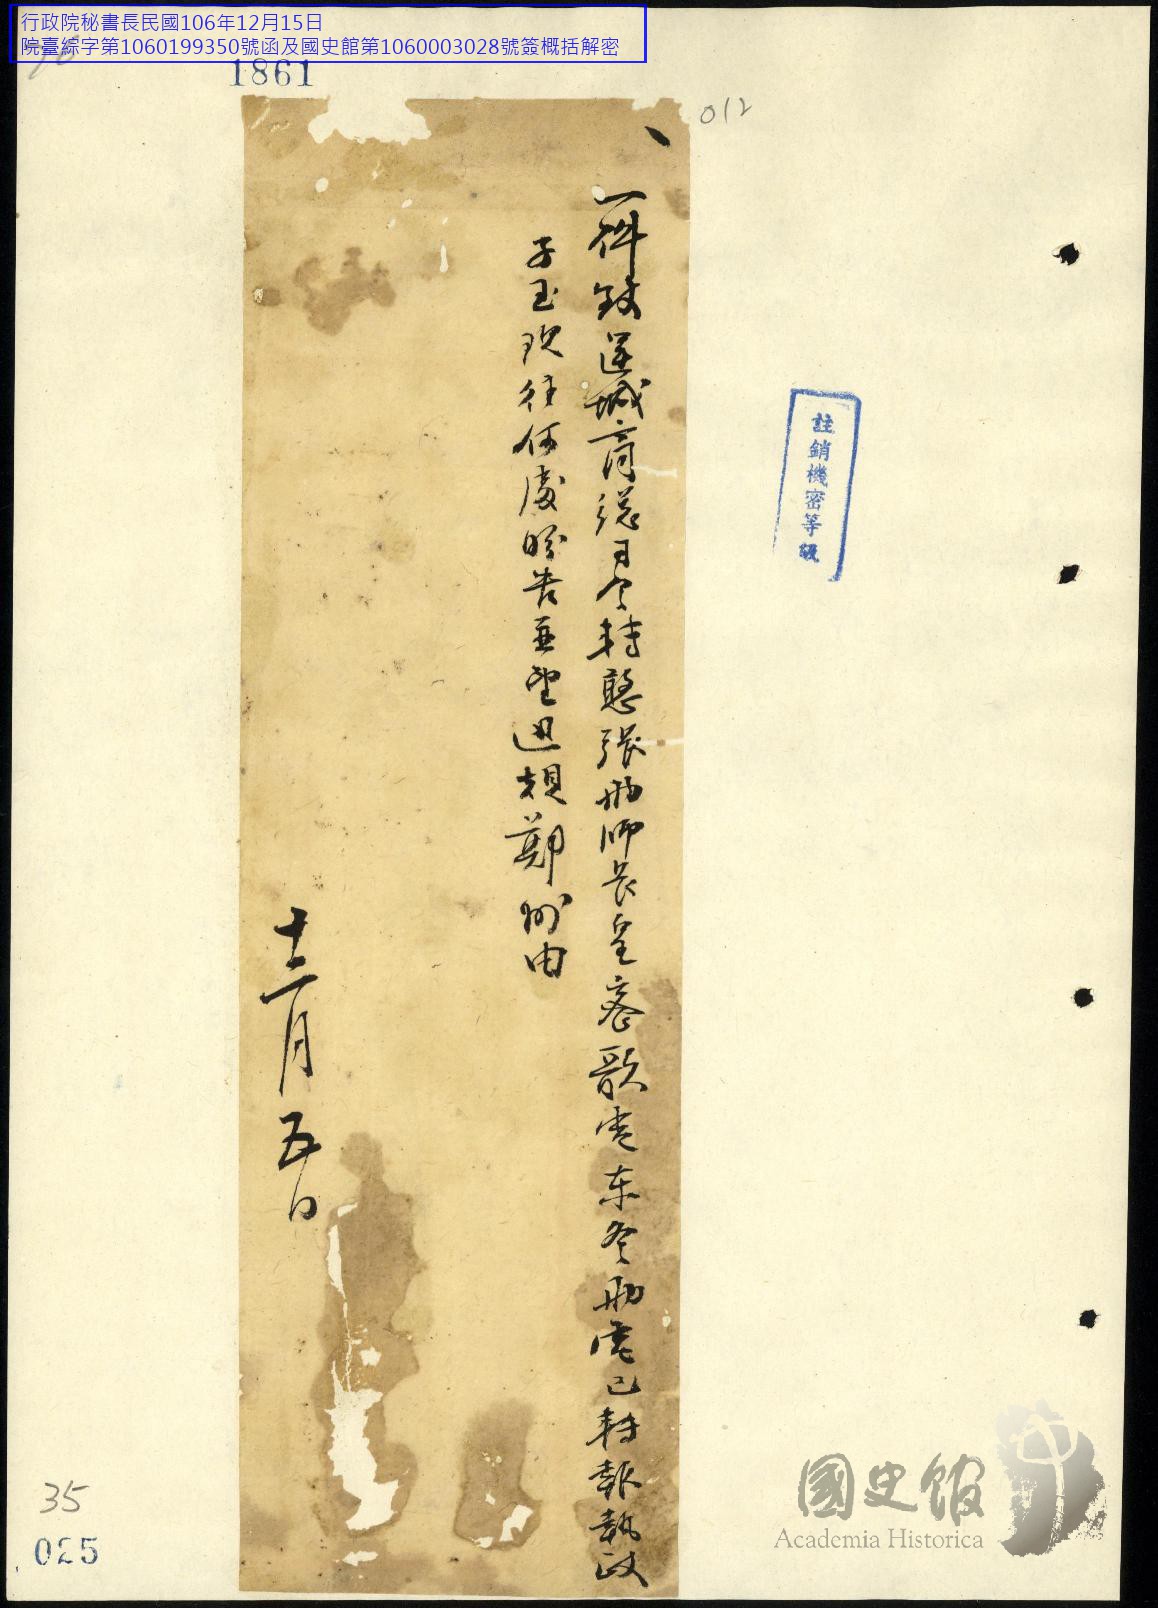 行政院秘書長民國106年12月15日
院臺綜字第1060199350號函及國史館第1060003028號簽概括解密
1861
012
一件致運城商總司令轉憨張砺師長皇密歌電東冬砺電已轉報執政
子玉現往何處盼告並望迅規鄭州由
十二月五日
註銷機密等級
35
025
國史館
Academia Historica